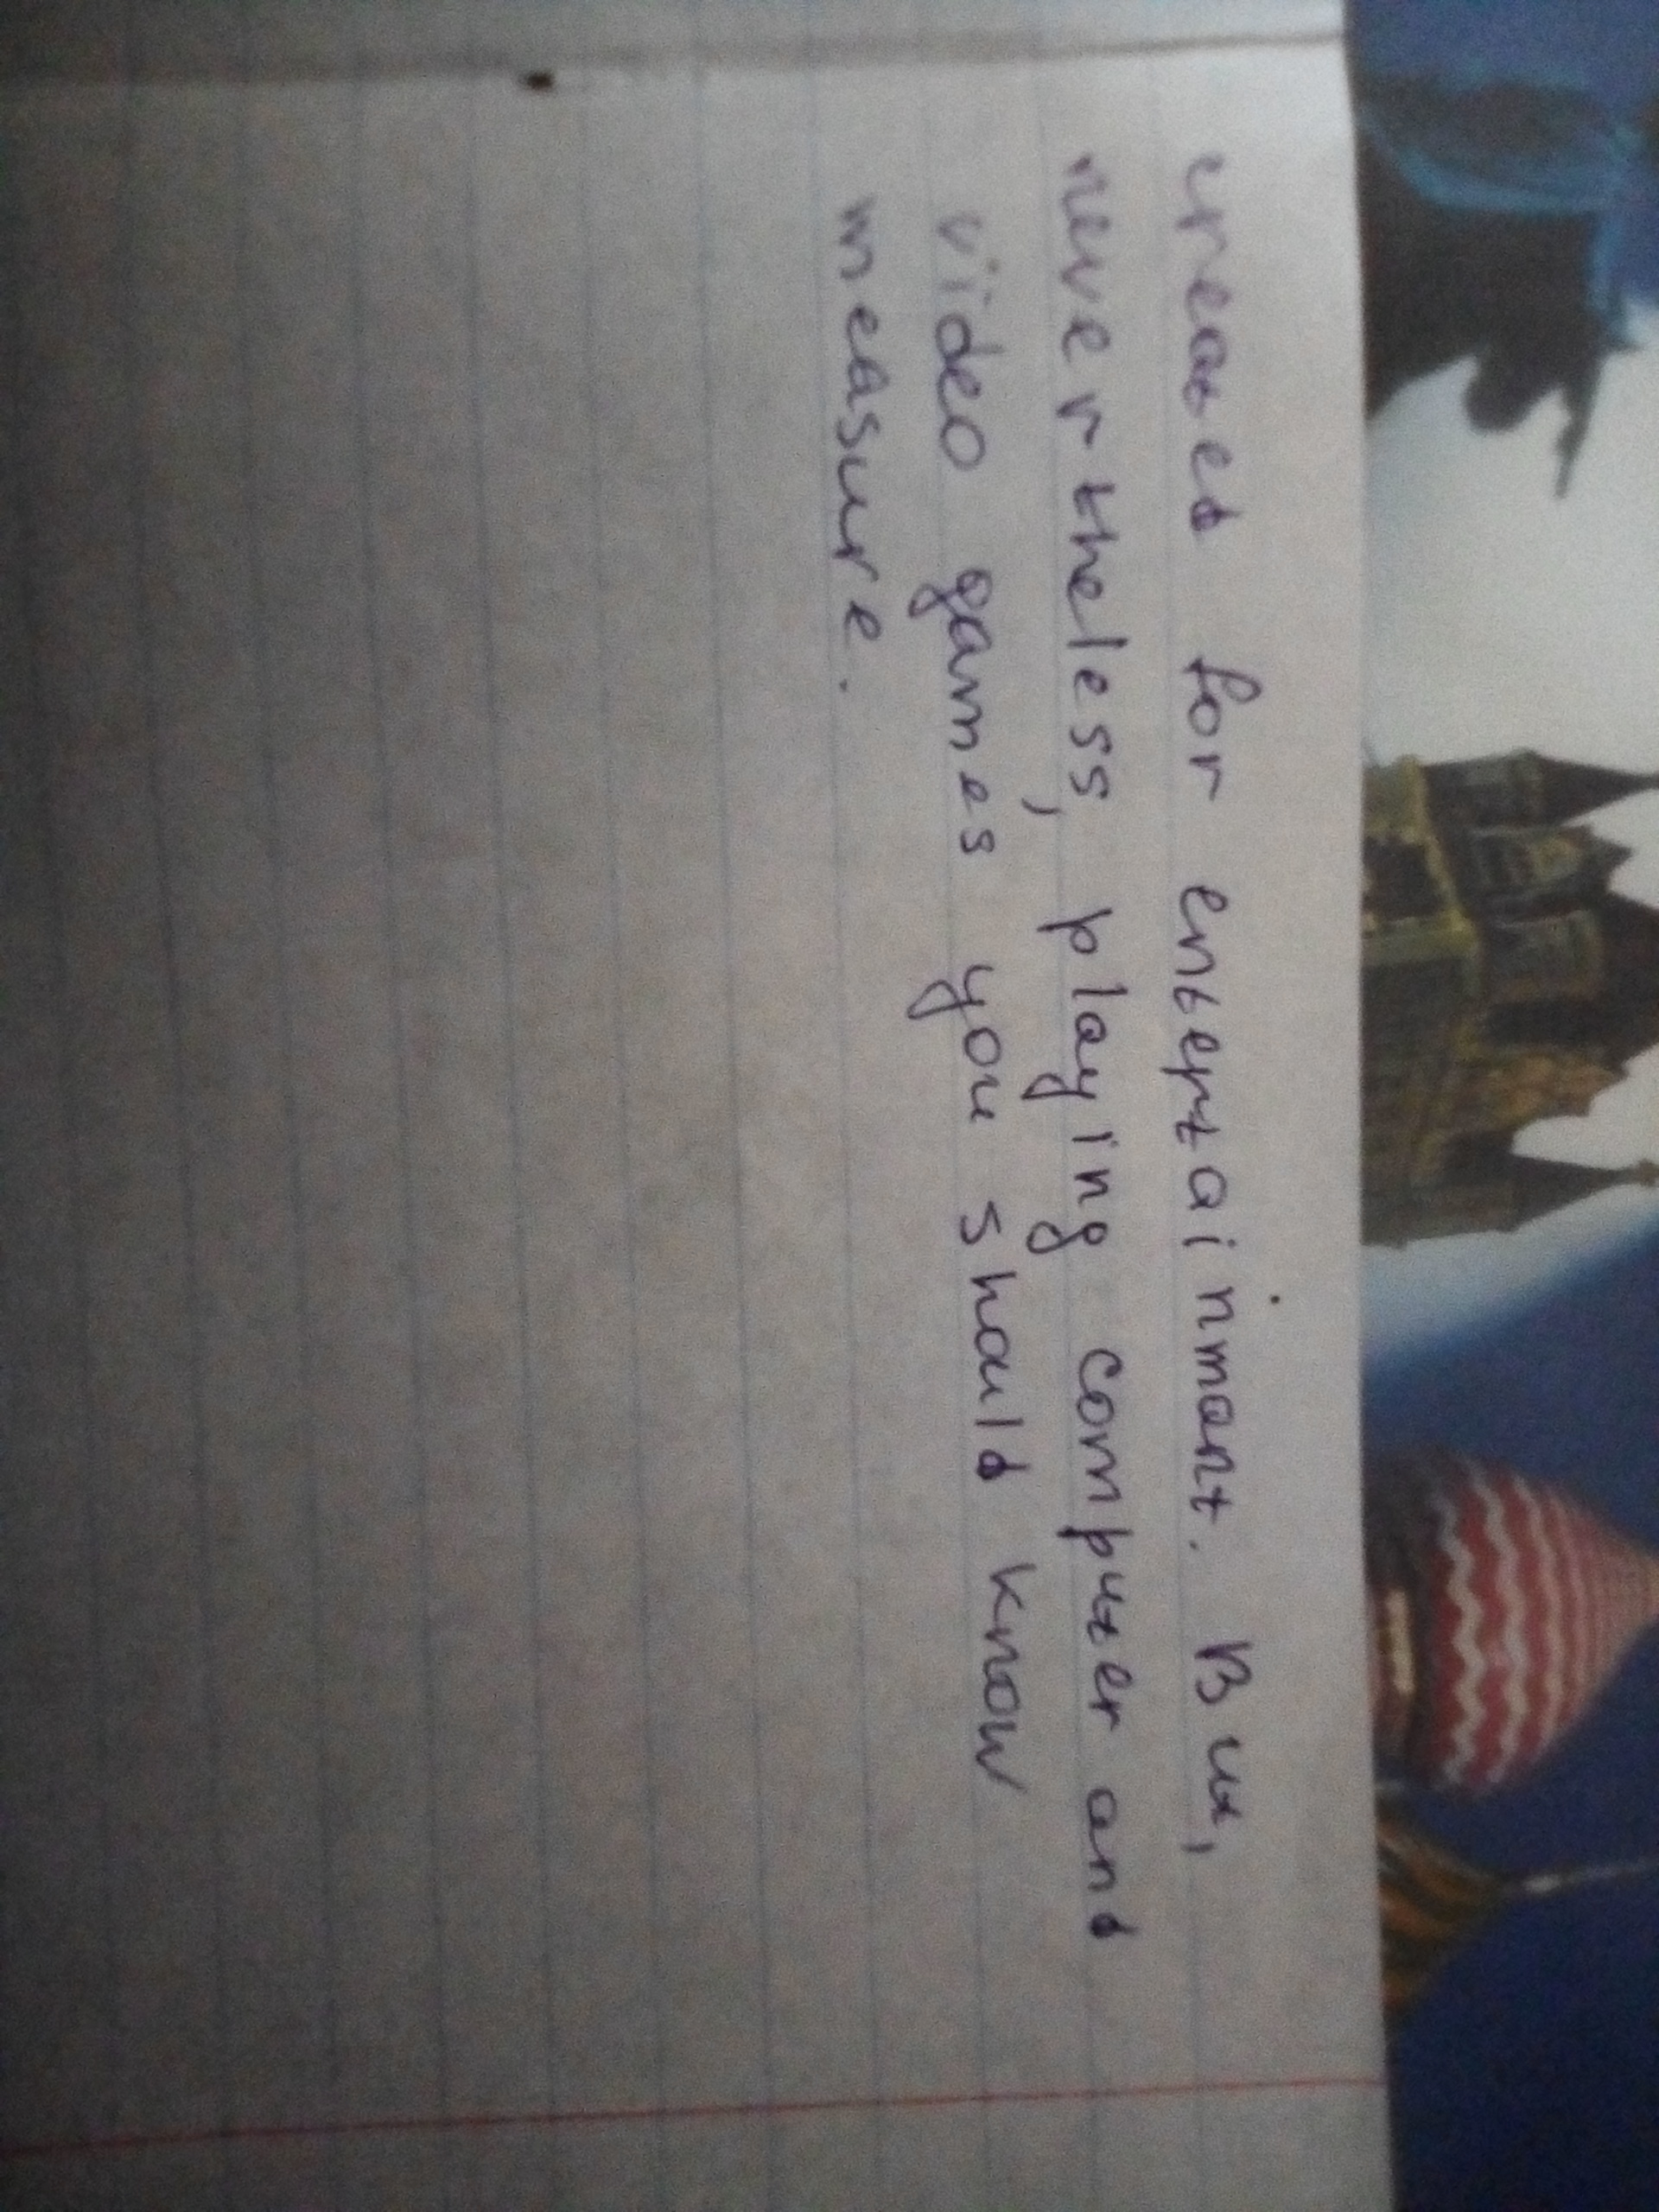 created for entertainmant. But,
nevertheless, playing computer and
video games you should know
measure.